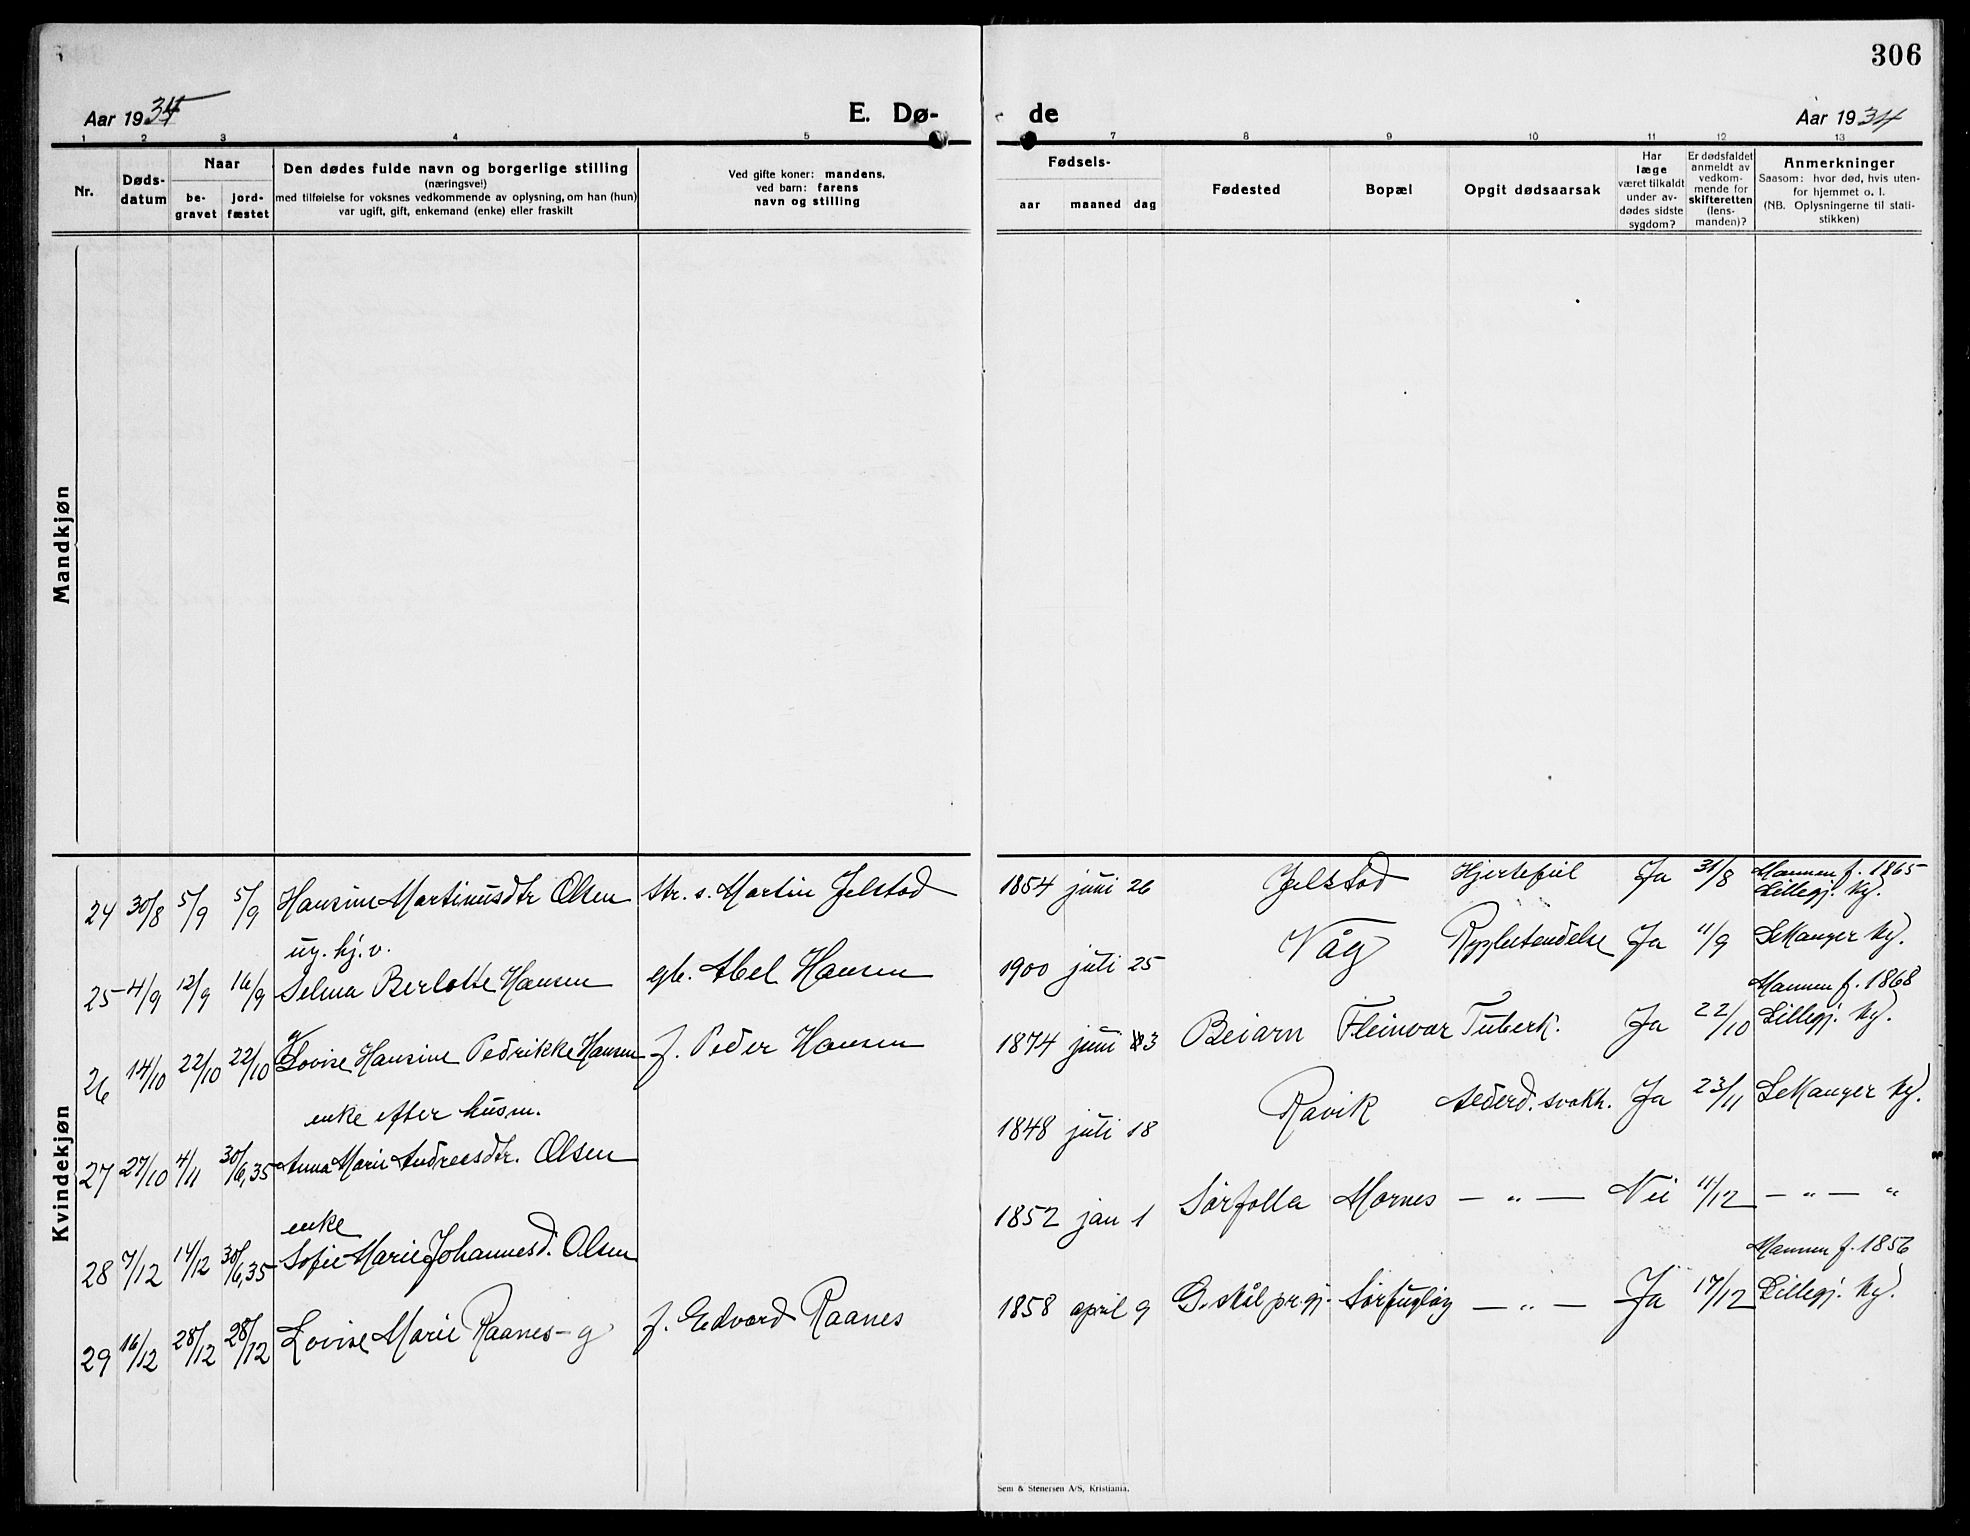 306
Aar 1934
E. Dø-
de
Aar 1934
1 2 3 4 5 7 8 9 10 11 12 13
Nr.
Døds-
datum
Naar
be-
gravet
jord-
fæstet
Den dødes fulde navn og borgerlige stilling
(næringsvei)
med tilføielse for voksnes vedkommende av oplysning, om han (hun)
var ugift, gift, enkemand (enke) eller fraskilt
Ved gifte koner: mandens,
ved barn: farens
navn og stilling
Fødsels-
aar maaned dag
Fødested
Bopæl
Opgit dødsaarsak
Har
læge
været tilkaldt
under av-
dødes sidste
sygdom?
Er dødsfaldet
anmeldt av
vedkom-
mende for
skifteretten
(lens-
manden)?
Anmerkninger
Saasom: hvor død, hvis uten-
for hjemmet o. l.
(NB. Oplysningerne til stati-
stikken)
Mandkjøn
Kvindekjøn
24 30/8 5/9 5/9 Hansine Martinusdtr Olsen str. s. Martin Jelstad 1854 juni 26 Jelstad Hjertefeil Ja 31/8 Mannen f. 1865
Lillegj. kg.
ug. hj. v.
25 4/9 12/9 16/9 Selma Berlotte Hansen gb. Abel Hansen 1900 juli 25 Våg Ja 11/9 Sekanger kg.
Mannen f. 1868
26 14/10 22/10 22/10 Lovise Hansine Pedrikke Hansen f. Peder Hansen 1874 juni 3 Beiarn Fleinvær Tuberk. Ja 22/10 Lillegj. kg.
enke efter husm.
27 27/10 4/11 30/6,35 Anna Marie Andreasdtr. Olsen 1848 juli 18 Ravik Alderd. svakh. Ja 23/11 Sekanger kg.
enke
28 7/12 14/12 30/6,35 Sofie Marie Johannesd. Olsen 1852 jan 1 Sørfolla Mornes — „ — Nei 11/12 — „ — „
Mannen f. 1856
29 16/12 28/12 28/12 Lovise Marie Raanes - g f. Edvard Raanes 1858 april 9 G.skål pr.gj. Sørfugløy — „ — Ja 17/12 Lillegj. kg.
Sem & Stenersen A/S, Kristiania.